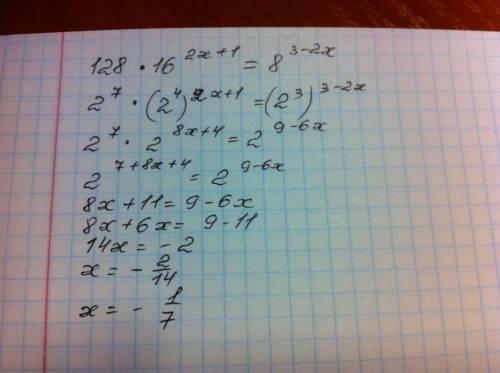 128 · 16^(2x+1) = 8^(3-2x)
2^7 · (2^4)^(2x+1) = (2^3)^(3-2x)
2^7 · 2^(8x+4) = 2^(9-6x)
2^(7+8x+4) = 2^(9-6x)
8x + 11 = 9 - 6x
8x + 6x = 9 - 11
14x = - 2
x = - 2/14
x = - 1/7